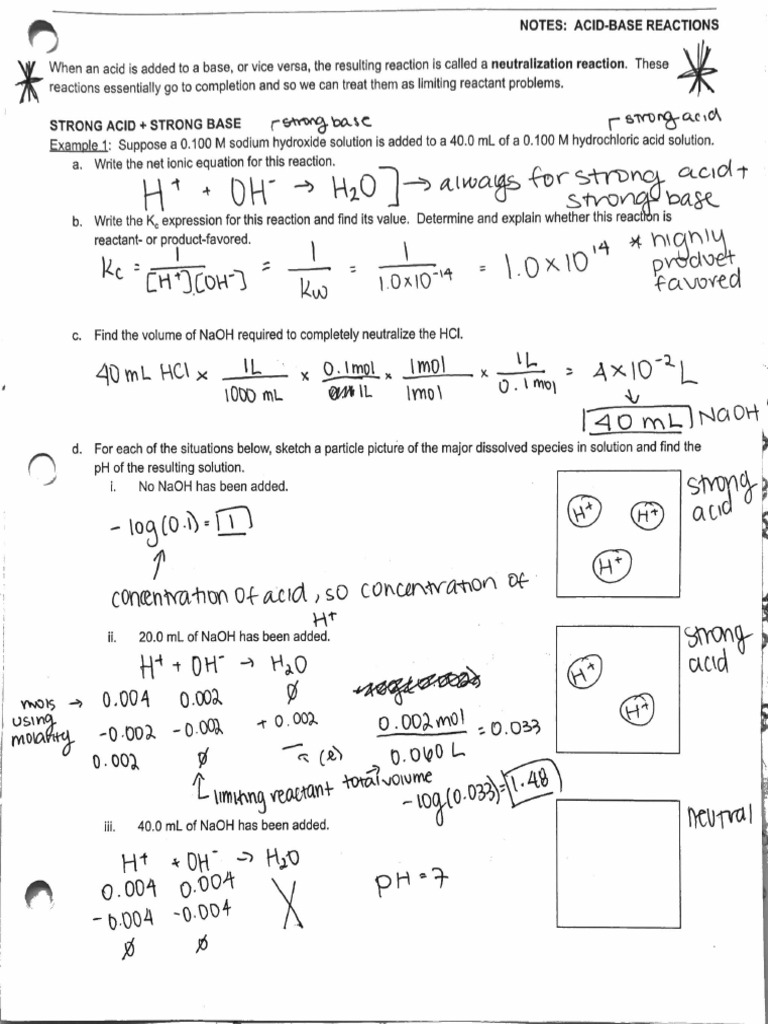 NOTES: ACID-BASE REACTIONS
When an acid is added to a base, or vice versa, the resulting reaction is called a neutralization reaction. These
reactions essentially go to completion and so we can treat them as limiting reactant problems.
STRONG ACID + STRONG BASE
strong base
strong acid
Example 1: Suppose a 0.100 M sodium hydroxide solution is added to a 40.0 mL of a 0.100 M hydrochloric acid solution.
a. Write the net ionic equation for this reaction.
H⁺ + OH⁻ → H₂O ] → always for strong acid +
strong base
b. Write the Kc expression for this reaction and find its value. Determine and explain whether this reaction is
reactant- or product-favored.
Kc = 1/[H⁺][OH⁻] = 1/Kw = 1/1.0×10⁻¹⁴ = 1.0×10¹⁴ * highly
product
favored
c. Find the volume of NaOH required to completely neutralize the HCl.
40 mL HCl × 1L/1000 mL × 0.1mol/1L × 1mol/1mol × 1L/0.1mol = 4×10⁻² L
↓
40 mL NaOH
d. For each of the situations below, sketch a particle picture of the major dissolved species in solution and find the
pH of the resulting solution.
i. No NaOH has been added.
-log(0.1) = 1
concentration of acid, so concentration of
H⁺
H⁺ H⁺
H⁺
strong
acid
ii. 20.0 mL of NaOH has been added.
H⁺ + OH⁻ → H₂O
mols → 0.004 0.002 ∅
using
molarity
-0.002 -0.002 + 0.002
0.002 ∅ — (l)
limiting reactant
0.002 mol/0.060 L = 0.033
total volume
-log(0.033) = 1.48
H⁺
H⁺
strong
acid
iii. 40.0 mL of NaOH has been added.
H⁺ + OH⁻ → H₂O
0.004 0.004
-0.004 -0.004
∅ ∅
pH = 7
neutral